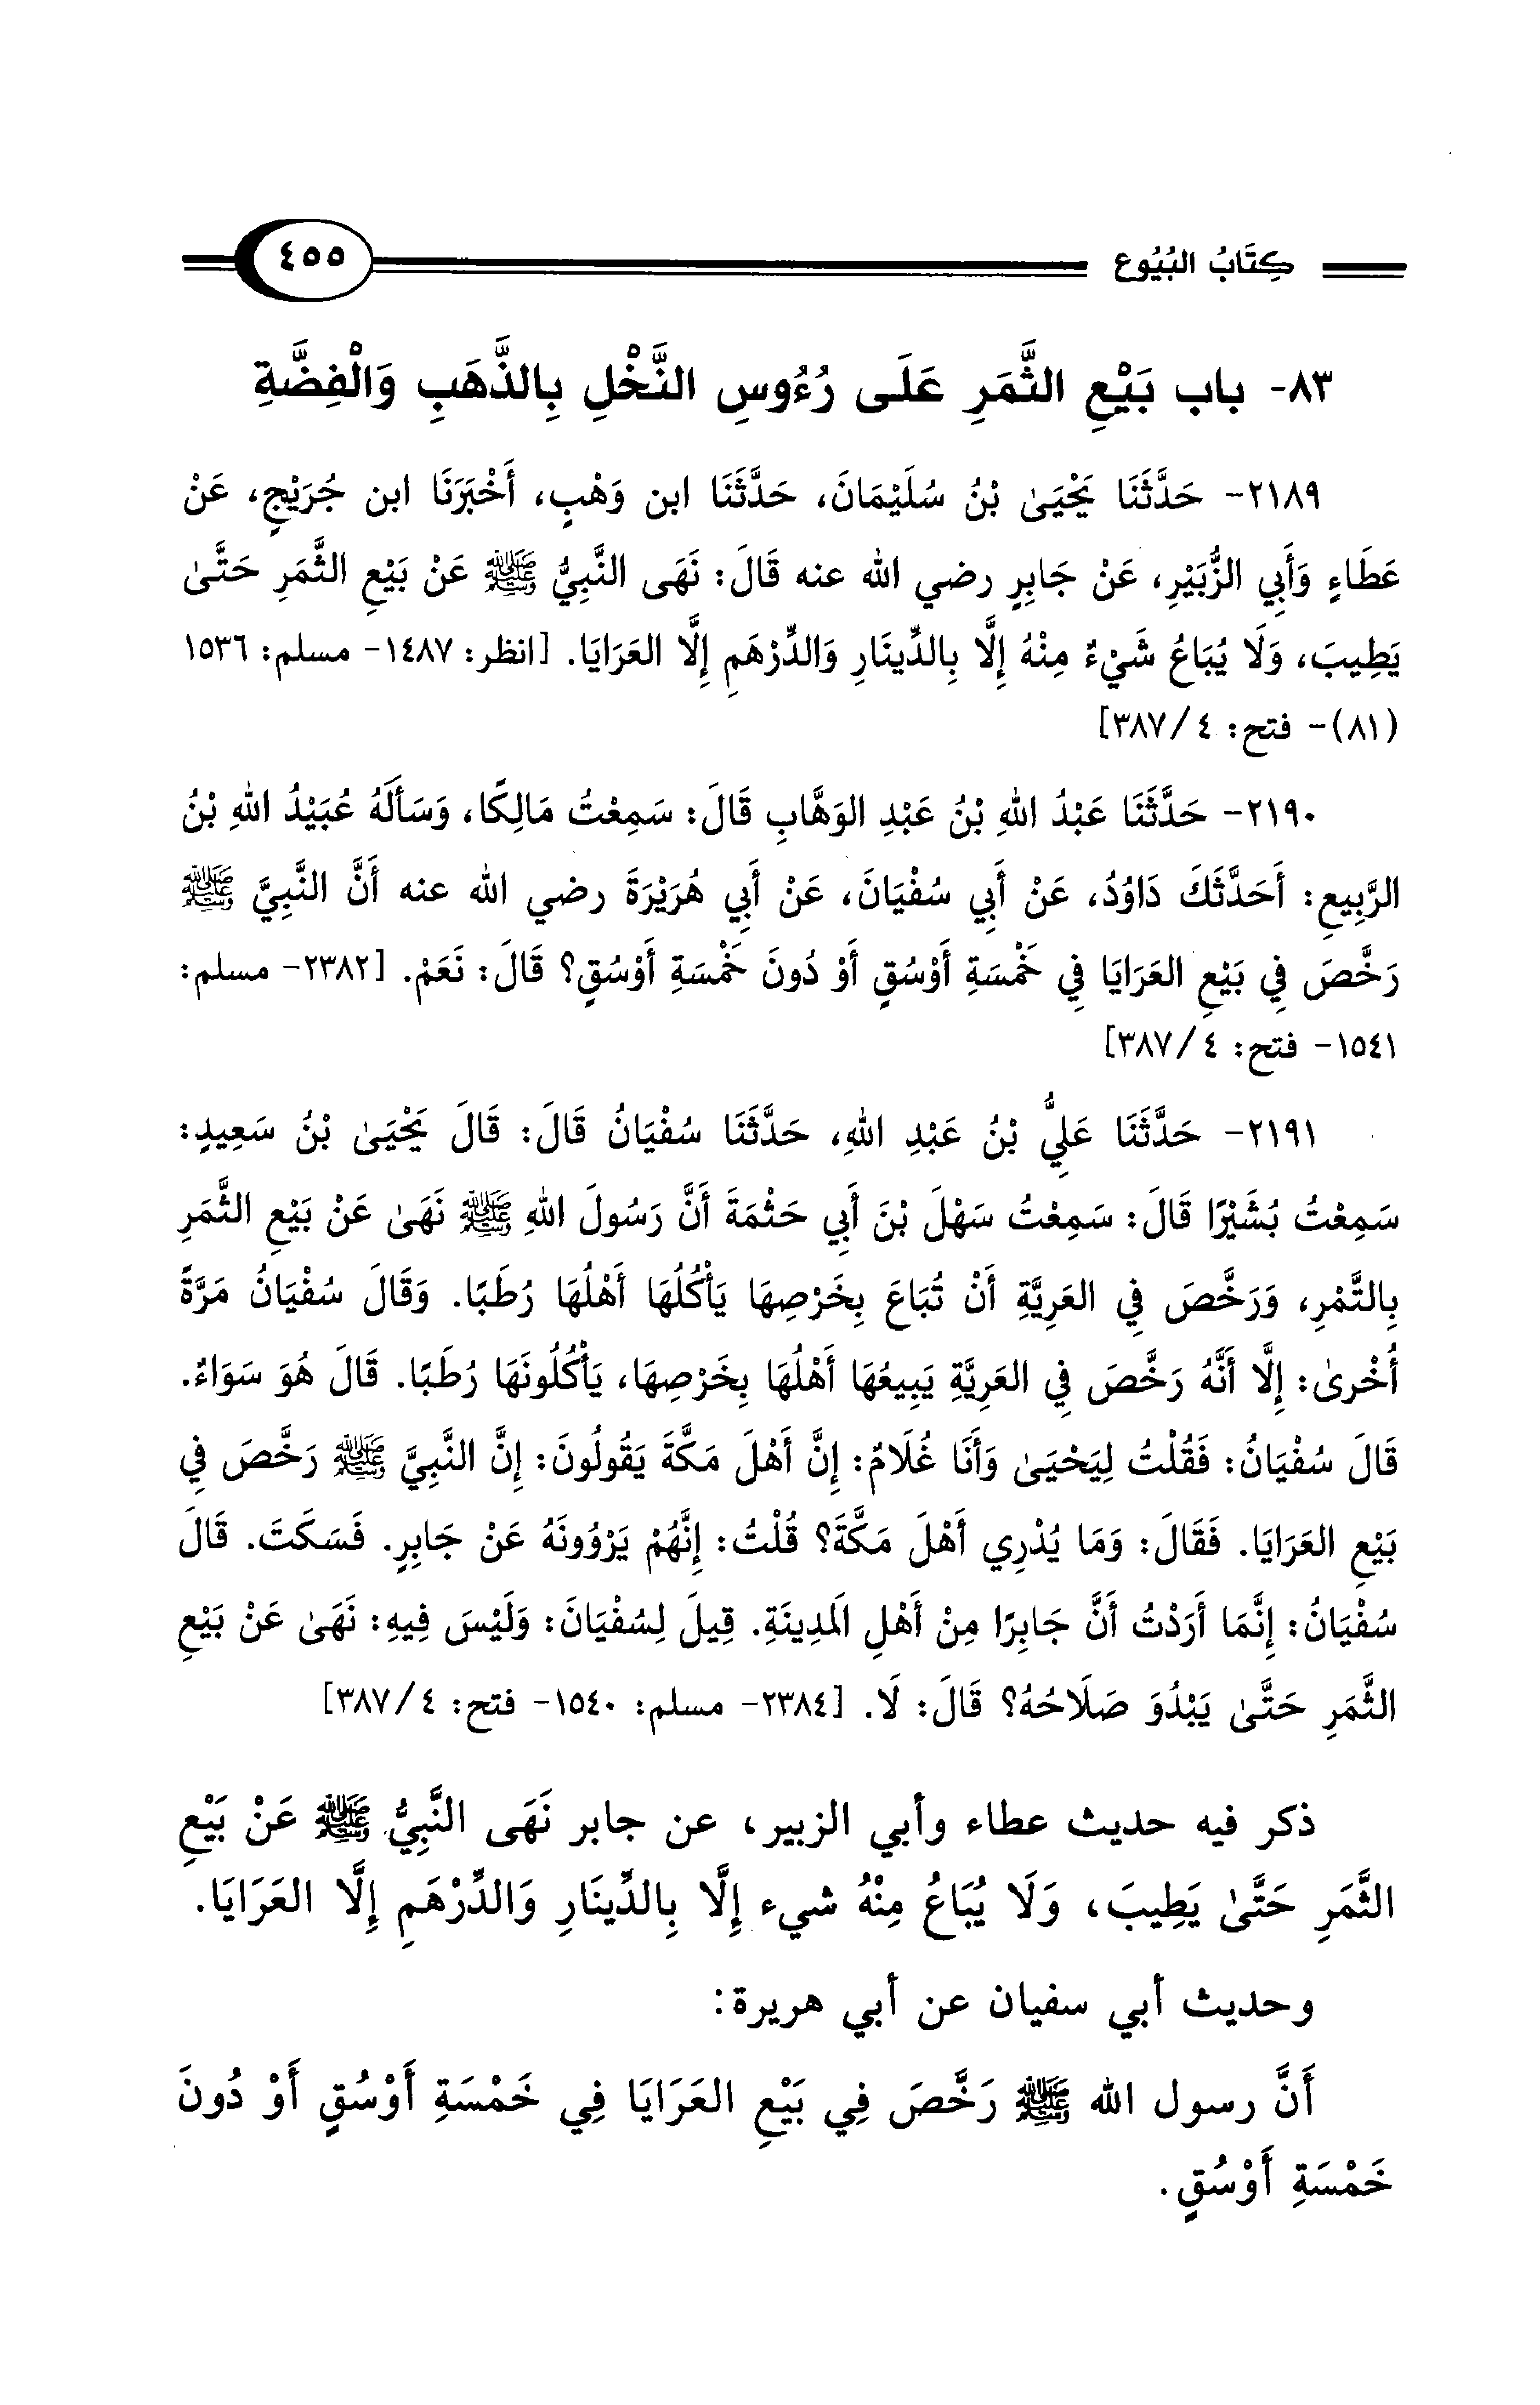 كِتَابُ البُيُوع ٤٥٥
٨٣- باب بَيْعِ الثَّمَرِ عَلَى رُءُوسِ النَّخْلِ بِالذَّهَبِ وَالْفِضَّةِ
٢١٨٩- حَدَّثَنَا يَحْيَىٰ بْنُ سُلَيْمَانَ، حَدَّثَنَا ابن وَهْبٍ، أَخْبَرَنَا ابن جُرَيْجٍ، عَنْ
عَطَاءٍ وَأَبِي الزُّبَيْرِ، عَنْ جَابِرٍ رضي الله عنه قَالَ: نَهَى النَّبِيُّ ﷺ عَنْ بَيْعِ الثَّمَرِ حَتَّىٰ
يَطِيبَ، وَلَا يُبَاعُ شَيْءٌ مِنْهُ إِلَّا بِالدِّينَارِ وَالدِّرْهَمِ إِلَّا العَرَايَا. [انظر: ١٤٨٧- مسلم: ١٥٣٦
(٨١)- فتح: ٤/ ٣٨٧]
٢١٩٠- حَدَّثَنَا عَبْدُ اللهِ بْنُ عَبْدِ الوَهَّابِ قَالَ: سَمِعْتُ مَالِكًا، وَسَأَلَهُ عُبَيْدُ اللهِ بْنُ
الرَّبِيعِ: أَحَدَّثَكَ دَاوُدُ، عَنْ أَبِي سُفْيَانَ، عَنْ أَبِي هُرَيْرَةَ رضي الله عنه أَنَّ النَّبِيَّ ﷺ
رَخَّصَ فِي بَيْعِ العَرَايَا فِي خَمْسَةِ أَوْسُقٍ أَوْ دُونَ خَمْسَةِ أَوْسُقٍ؟ قَالَ: نَعَمْ. [٢٣٨٢- مسلم:
١٥٤١- فتح: ٤/ ٣٨٧]
٢١٩١- حَدَّثَنَا عَلِيُّ بْنُ عَبْدِ اللهِ، حَدَّثَنَا سُفْيَانُ قَالَ: قَالَ يَحْيَىٰ بْنُ سَعِيدٍ:
سَمِعْتُ بُشَيْرًا قَالَ: سَمِعْتُ سَهْلَ بْنَ أَبِي حَثْمَةَ أَنَّ رَسُولَ اللهِ ﷺ نَهَىٰ عَنْ بَيْعِ الثَّمَرِ
بِالتَّمْرِ، وَرَخَّصَ فِي العَرِيَّةِ أَنْ تُبَاعَ بِخَرْصِهَا يَأْكُلُهَا أَهْلُهَا رُطَبًا. وَقَالَ سُفْيَانُ مَرَّةً
أُخْرىٰ: إِلَّا أَنَّهُ رَخَّصَ فِي العَرِيَّةِ يَبِيعُهَا أَهْلُهَا بِخَرْصِهَا، يَأْكُلُونَهَا رُطَبًا. قَالَ هُوَ سَوَاءٌ.
قَالَ سُفْيَانُ: فَقُلْتُ لِيَحْيَىٰ وَأَنَا غُلَامٌ: إِنَّ أَهْلَ مَكَّةَ يَقُولُونَ: إِنَّ النَّبِيَّ ﷺ رَخَّصَ فِي
بَيْعِ العَرَايَا. فَقَالَ: وَمَا يُدْرِي أَهْلَ مَكَّةَ؟ قُلْتُ: إِنَّهُمْ يَرْوُونَهُ عَنْ جَابِرٍ. فَسَكَتَ. قَالَ
سُفْيَانُ: إِنَّمَا أَرَدْتُ أَنَّ جَابِرًا مِنْ أَهْلِ المَدِينَةِ. قِيلَ لِسُفْيَانَ: وَلَيْسَ فِيهِ: نَهَىٰ عَنْ بَيْعِ
الثَّمَرِ حَتَّىٰ يَبْدُوَ صَلَاحُهُ؟ قَالَ: لَا. [٢٣٨٤- مسلم: ١٥٤٠- فتح: ٤/ ٣٨٧]
ذكر فيه حديث عطاء وأبي الزبير، عن جابر نَهَى النَّبِيُّ ﷺ عَنْ بَيْعِ
الثَّمَرِ حَتَّىٰ يَطِيبَ، وَلَا يُبَاعُ مِنْهُ شيء إِلَّا بِالدِّينَارِ وَالدِّرْهَمِ إِلَّا العَرَايَا.
وحديث أبي سفيان عن أبي هريرة:
أَنَّ رسول الله ﷺ رَخَّصَ فِي بَيْعِ العَرَايَا فِي خَمْسَةِ أَوْسُقٍ أَوْ دُونَ
خَمْسَةِ أَوْسُقٍ.